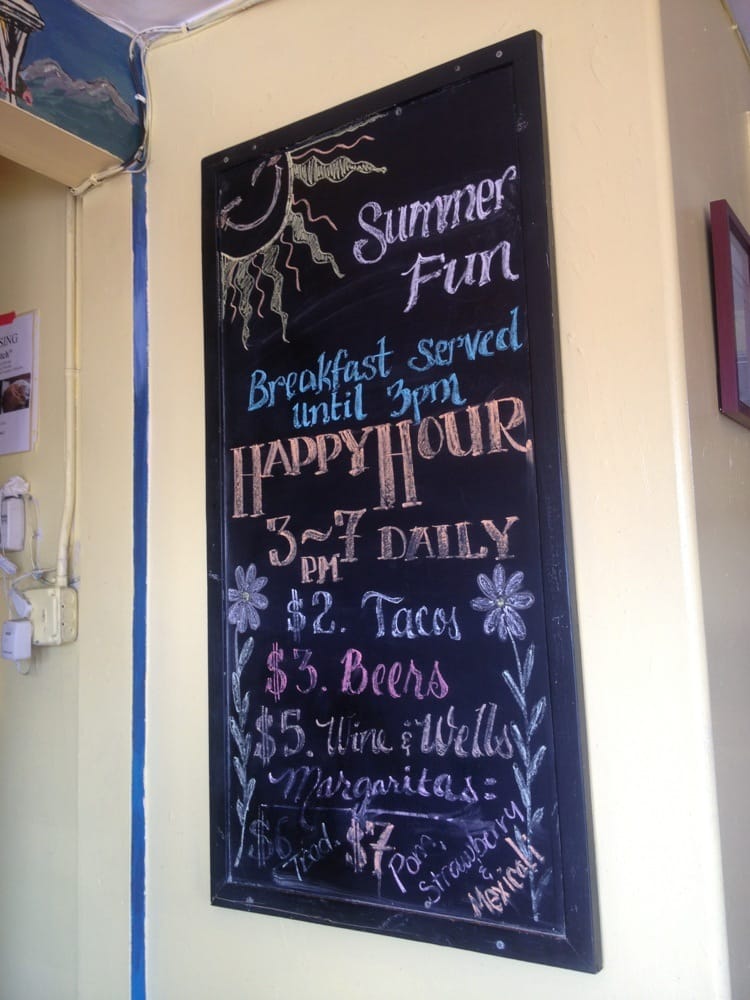 Summer
Fun
Breakfast Served
until 3pm
HAPPY HOUR
3~7 DAILY
PM
$2. Tacos
$3. Beers
$5. Wine & Wells
Margaritas:
$6 Trad. $7 Pom,
Strawberry
&
Mexicali
SING